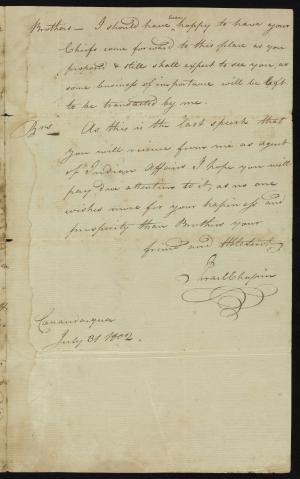 been
Brothers— I should have happy to have your
Chiefs come forward to this place as you
proposed & stills shall expect to see you, as
some business of importance will be left
to be transacted by me.
Brs As this is the last speech that
you will receive from me as agent
of Indian Affairs I hope you will
pay due attention to it, as no one
wishes more for your happiness and
prosperity than Brothers your
friend and
Israel Chapin
Canandaigua
July 31 1802.